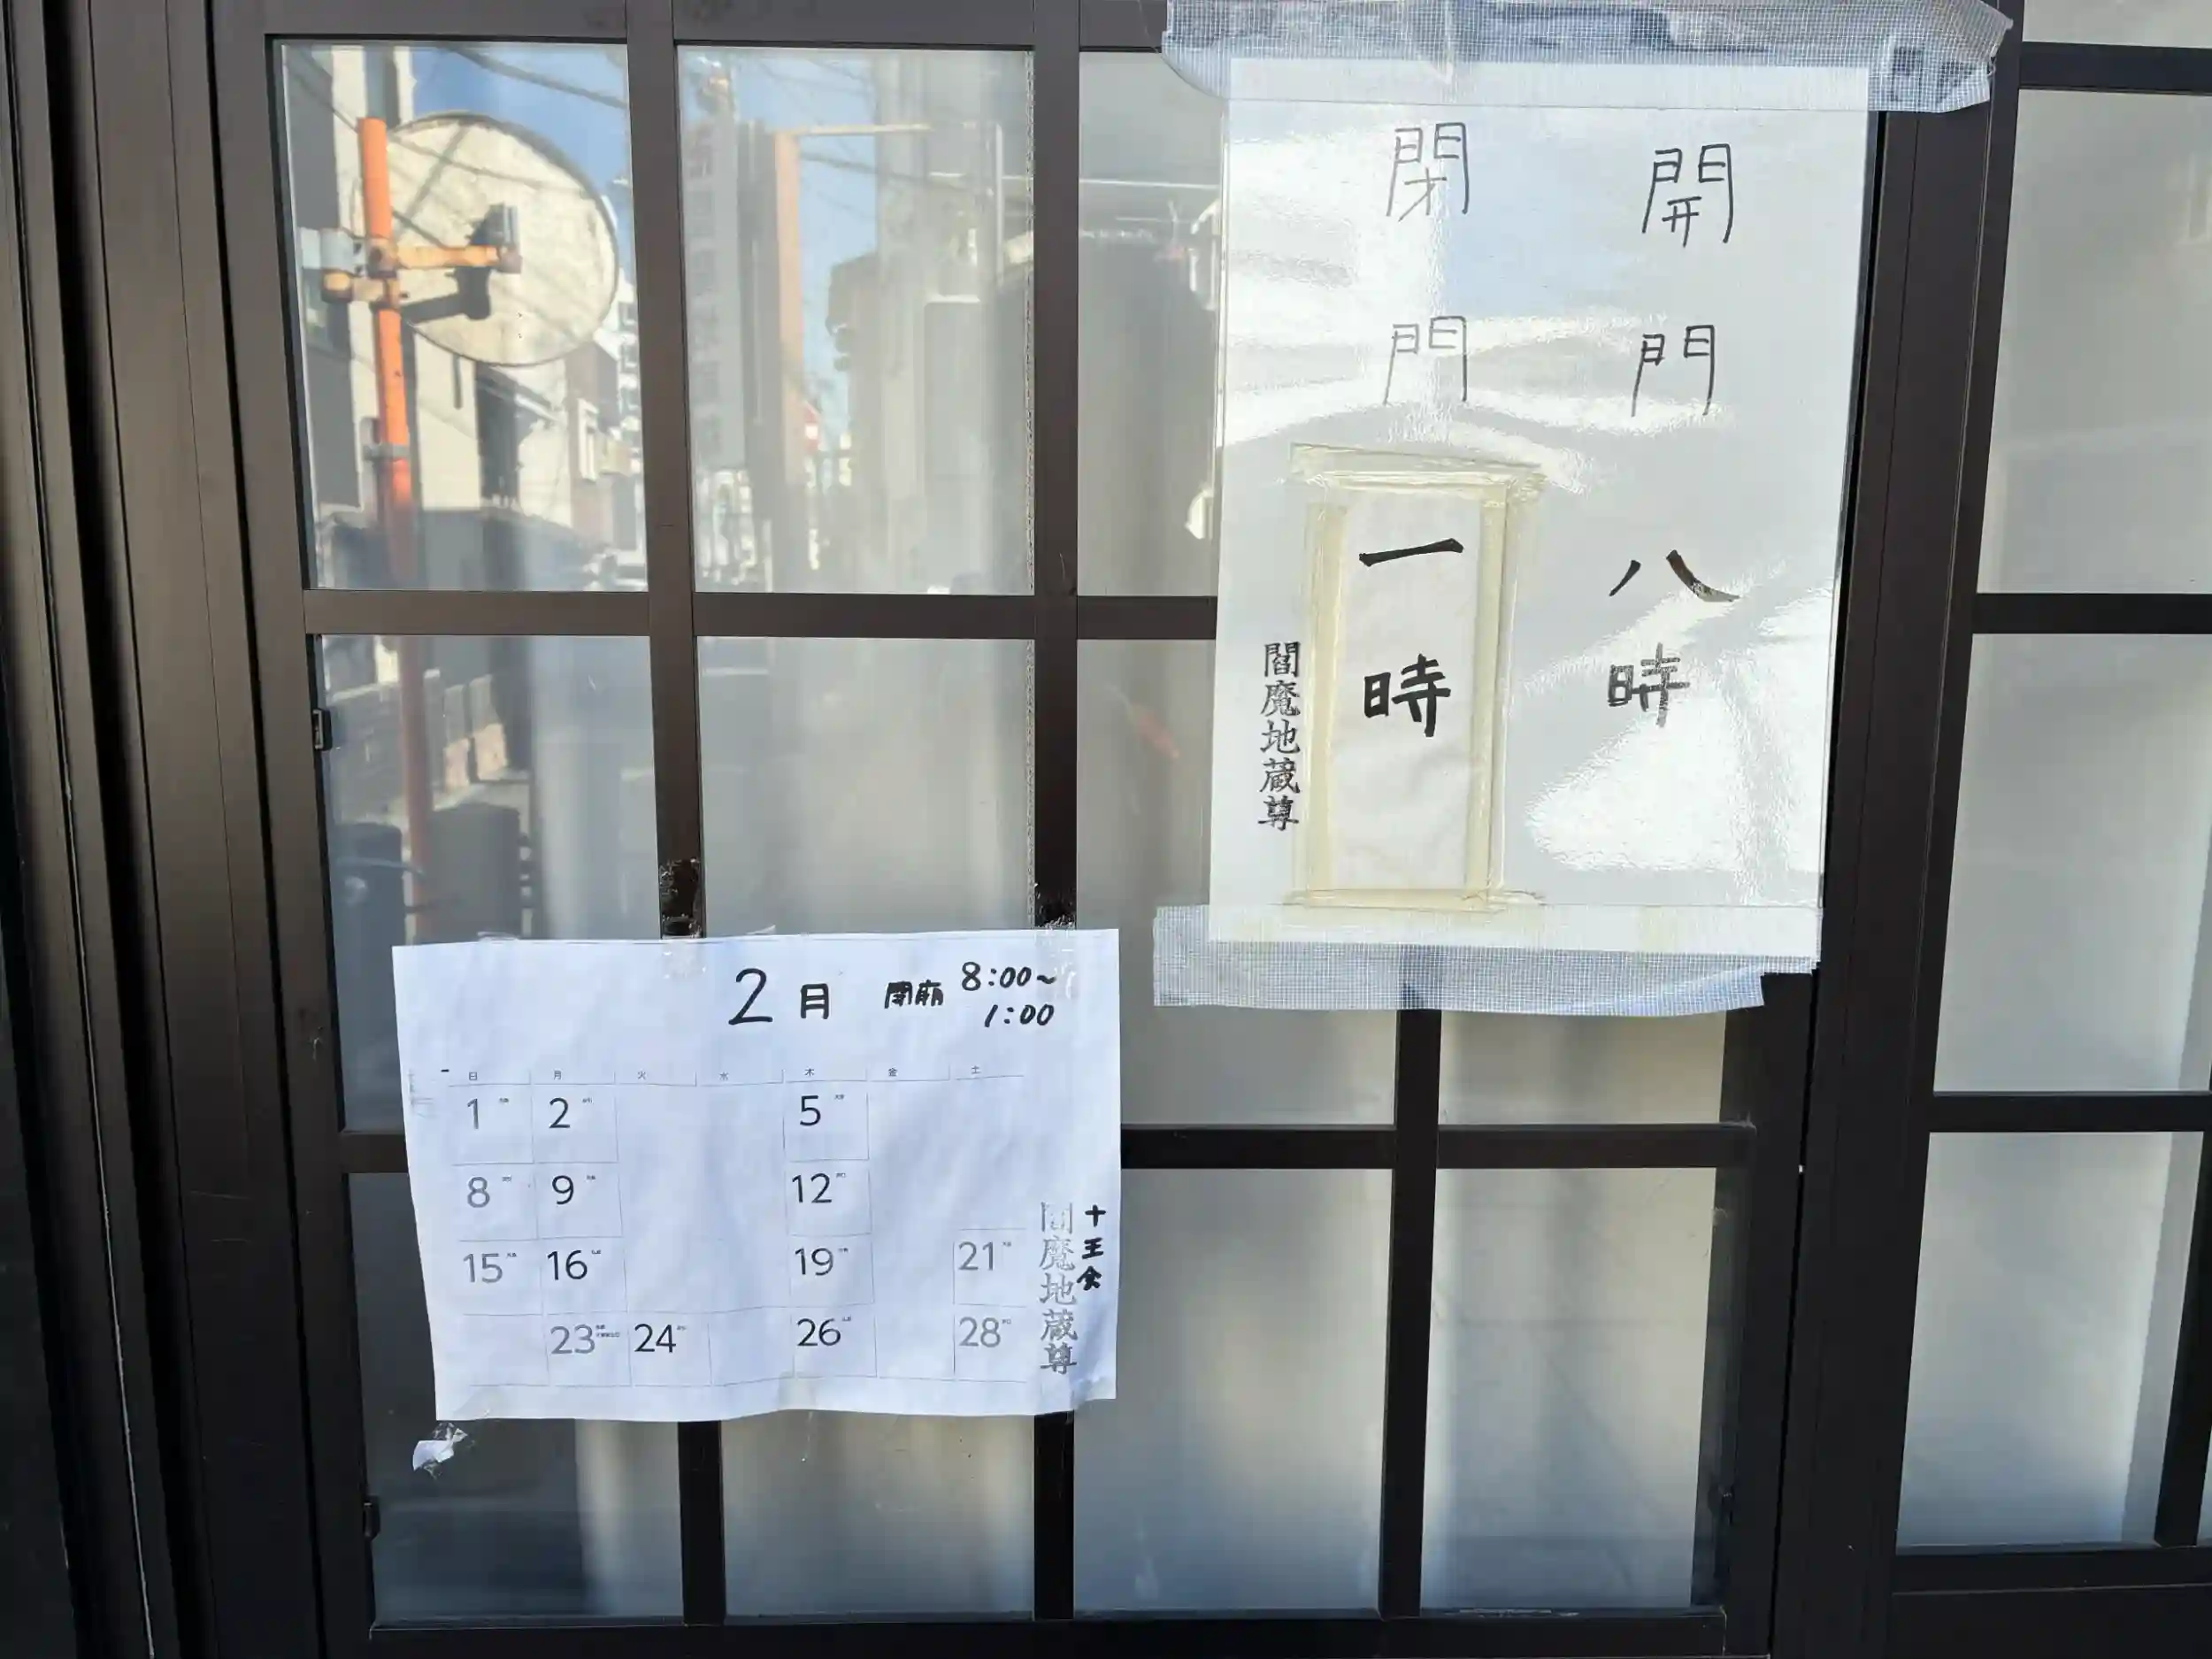 開門 八時
閉門 一時
閻魔地蔵尊
2月 開廟 8:00~
1:00
日 月 火 水 木 金 土
1 2 5
8 9 12
15 16 19 21
23 24 26 28
十王会
閻魔地蔵尊